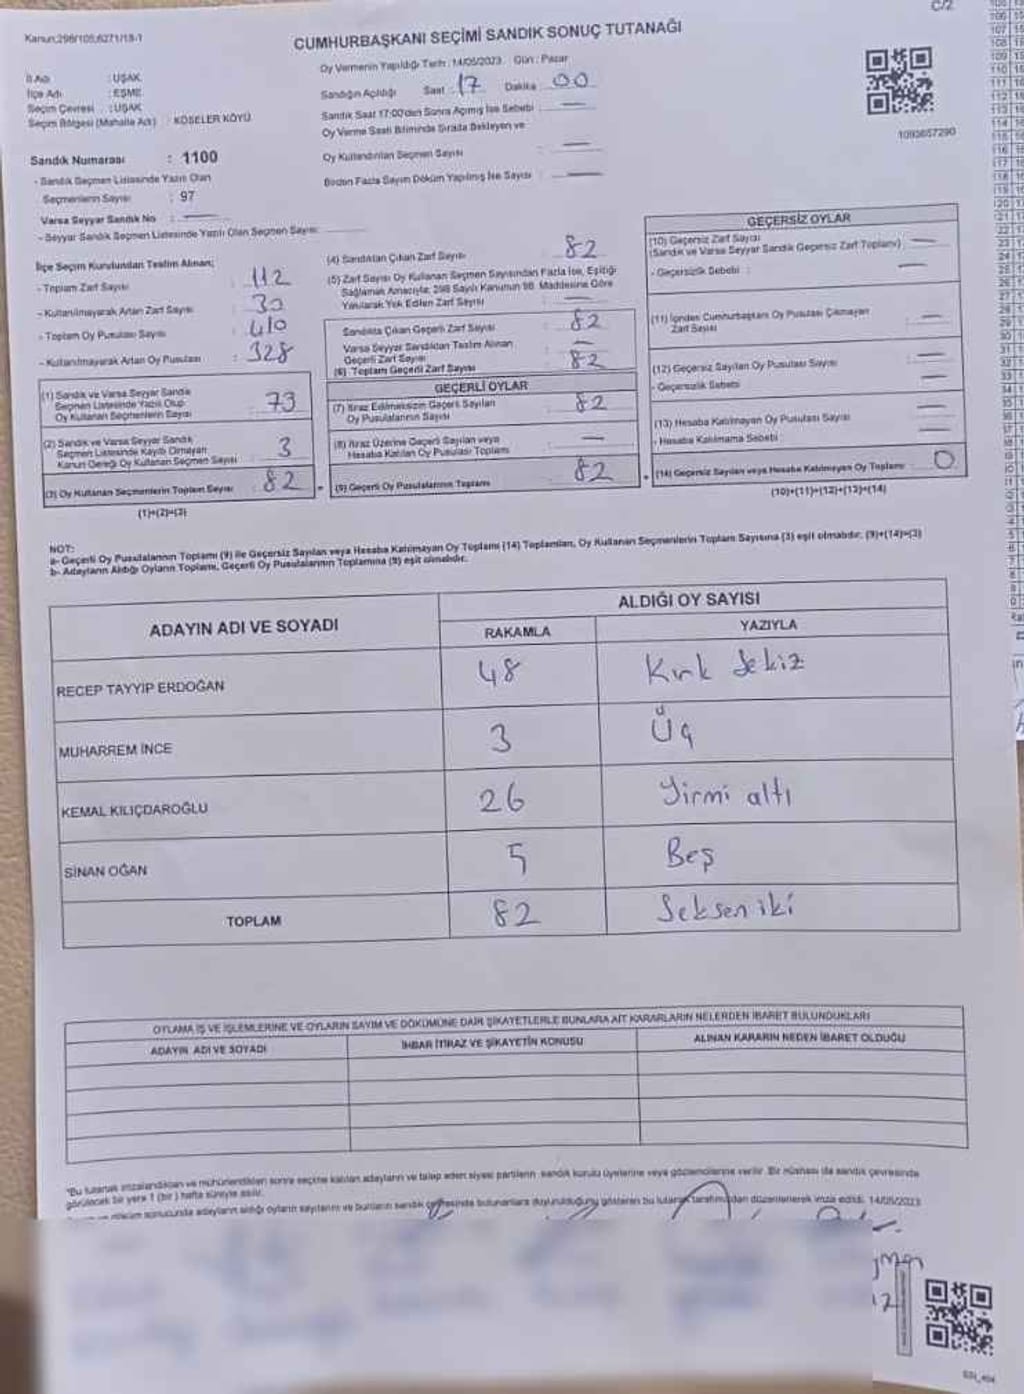 Kanun;298/105;6271/18-1
C/2
CUMHURBAŞKANI SEÇİMİ SANDIK SONUÇ TUTANAĞI
Oy Vermenin Yapıldığı Tarih : 14/05/2023 Gün : Pazar
İl Adı : UŞAK
İlçe Adı : EŞME
Seçim Çevresi : UŞAK
Seçim Bölgesi (Mahalle Adı) : KÖSELER KÖYÜ
Sandığın Açıldığı Saat : 17 Dakika 00
Sandık Saat 17:00'den Sonra Açmış İse Sebebi : —
Oy Verme Saati Bitiminde Sırada Bekleyen ve
Oy Kullandırılan Seçmen Sayısı : —
Birden Fazla Sayım Döküm Yapılmış İse Sayısı : —
1093657290
Sandık Numarası : 1100
- Sandık Seçmen Listesinde Yazılı Olan
Seçmenlerin Sayısı : 97
Varsa Seyyar Sandık No : —
- Seyyar Sandık Seçmen Listesinde Yazılı Olan Seçmen Sayısı:
İlçe Seçim Kurulundan Teslim Alınan;
- Toplam Zarf Sayısı : 112
- Kullanılmayarak Artan Zarf Sayısı : 30
- Toplam Oy Pusulası Sayısı : 410
- Kullanılmayarak Artan Oy Pusulası : 328
(1) Sandık ve Varsa Seyyar Sandık
Seçmen Listesinde Yazılı Olup
Oy Kullanan Seçmenlerin Sayısı : 79
(2) Sandık ve Varsa Seyyar Sandık
Seçmen Listesinde Kayıtlı Olmayan
Kanun Gereği Oy Kullanan Seçmen Sayısı : 3
(3) Oy Kullanan Seçmenlerin Toplam Sayısı : 82
(1)+(2)=(3)
(4) Sandıktan Çıkan Zarf Sayısı : 82
(5) Zarf Sayısı Oy Kullanan Seçmen Sayısından Fazla İse, Eşitliği
Sağlamak Amacıyla; 298 Sayılı Kanunun 98. Maddesine Göre
Yakılarak Yok Edilen Zarf Sayısı : —
Sandıkta Çıkan Geçerli Zarf Sayısı : 82
Varsa Seyyar Sandıktan Teslim Alınan
Geçerli Zarf Sayısı : —
(6) Toplam Geçerli Zarf Sayısı : 82
GEÇERLİ OYLAR
(7) İtiraz Edilmeksizin Geçerli Sayılan
Oy Pusulalarının Sayısı : 82
(8) İtiraz Üzerine Geçerli Sayılan veya
Hesaba Katılan Oy Pusulası Toplamı : —
(9) Geçerli Oy Pusulalarının Toplamı : 82
GEÇERSİZ OYLAR
(10) Geçersiz Zarf Sayısı
(Sandık ve Varsa Seyyar Sandık Geçersiz Zarf Toplamı) : —
- Geçersizlik Sebebi : —
(11) İçinden Cumhurbaşkanı Oy Pusulası Çıkmayan
Zarf Sayısı : —
(12) Geçersiz Sayılan Oy Pusulası Sayısı : —
- Geçersizlik Sebebi : —
(13) Hesaba Katılmayan Oy Pusulası Sayısı : —
- Hesaba Katılmama Sebebi : —
(14) Geçersiz Sayılan veya Hesaba Katılmayan Oy Toplamı : 0
(10)+(11)+(12)+(13)=(14)
NOT:
a- Geçerli Oy Pusulalarının Toplamı (9) ile Geçersiz Sayılan veya Hesaba Katılmayan Oy Toplamı (14) Toplamları, Oy Kullanan Seçmenlerin Toplam Sayısına (3) eşit olmalıdır. (9)+(14)=(3)
b- Adayların Aldığı Oyların Toplamı, Geçerli Oy Pusulalarının Toplamına (9) eşit olmalıdır.
ADAYIN ADI VE SOYADI
ALDIĞI OY SAYISI
RAKAMLA YAZIYLA
RECEP TAYYIP ERDOĞAN 48 Kırk Sekiz
MUHARREM İNCE 3 Üç
KEMAL KILIÇDAROĞLU 26 Yirmi altı
SİNAN OĞAN 5 Beş
TOPLAM 82 Seksen iki
OYLAMA İŞ VE İŞLEMLERİNE VE OYLARIN SAYIM VE DÖKÜMÜNE DAİR ŞİKAYETLERLE BUNLARA AİT KARARLARIN NELERDEN İBARET BULUNDUKLARI
ADAYIN ADI VE SOYADI İHBAR İTİRAZ VE ŞİKAYETİN KONUSU ALINAN KARARIN NEDEN İBARET OLDUĞU
*Bu tutanak imzalandıktan ve mühürlendikten sonra seçime katılan adayların ve talep eden siyasi partilerin sandık kurulu üyelerine veya gözlemcilerine verilir. Bir nüshası da sandık çevresinde
görülecek bir yere 1 (bir) hafta süreyle asılır.
döküm sonucunda adayların aldığı oyların sayılarını ve bunların sandık çevresinde bulunanlara duyurulduğunu gösteren bu tutanak tarafımızdan düzenlenerek imza edildi. 14/05/2023